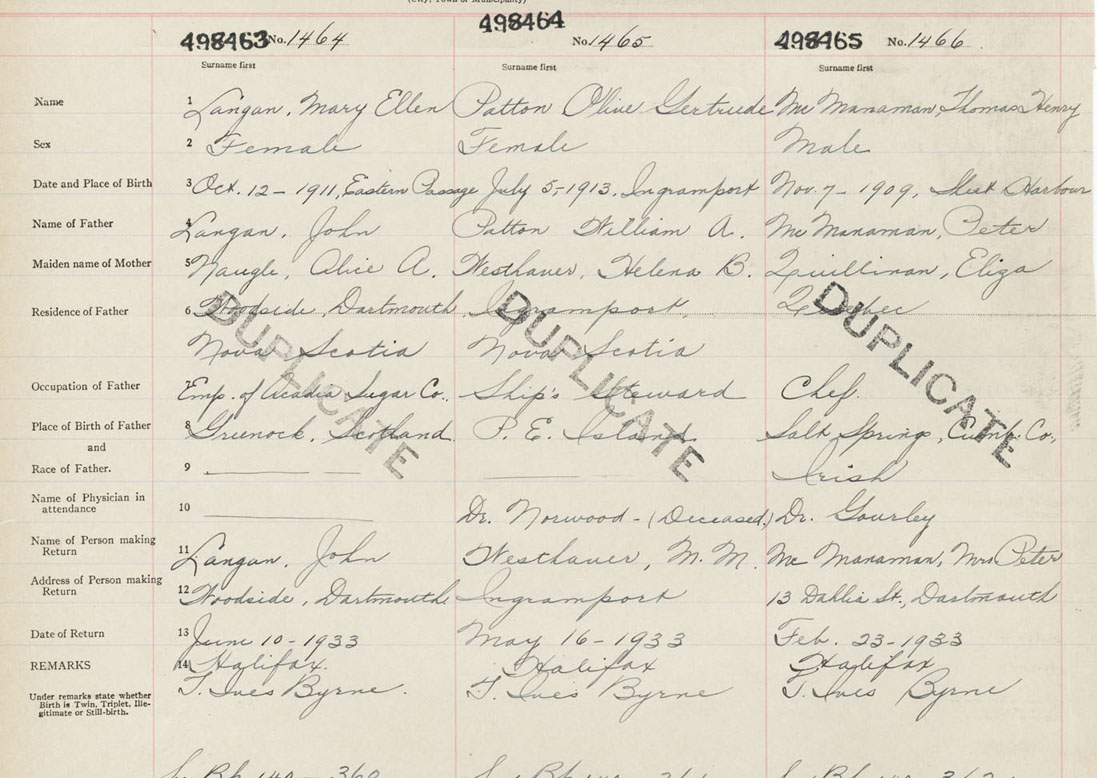 (City, Town or Municipality)
498463 No. 1464 498464 No. 1465 498465 No. 1466
Surname first Surname first Surname first
Name 1 Langan, Mary Ellen Patton Olive Gertrude Mc Manaman, Thomas Henry
Sex 2 Female Female Male
Date and Place of Birth 3 Oct. 12 - 1911, Eastern Passage July 5, - 1913, Ingramport Nov. 7 - 1909, Sheet Harbour
Name of Father 4 Langan, John Patton William A. Mc Manaman, Peter
Maiden name of Mother 5 Naugle, Alice A. Westhaver, Helena B. Quillinan, Eliza
Residence of Father 6 Woodside, Dartmouth, Ingramport, Quebec
Nova Scotia Nova Scotia
DUPLICATE DUPLICATE DUPLICATE
Occupation of Father 7 Emp. of Acadia Sugar Co. Ship's Steward Chef.
Place of Birth of Father 8 Greenock, Scotland P. E. Island Salt Springs, Cumb. Co.,
and
Race of Father. 9 Irish
Name of Physician in
attendance 10 Dr. Norwood - (Deceased.) Dr. Gourley
Name of Person making
Return 11 Langan, John Westhaver, M. M. Mc Manaman, Mrs Peter
Address of Person making
Return 12 Woodside, Dartmouth Ingramport 13 Dahlia St., Dartmouth
Date of Return 13 June 10 - 1933 May 16 - 1933 Feb. 23 - 1933
REMARKS 14 Halifax. Halifax Halifax
Under remarks state whether
Birth is Twin, Triplet, Ille-
gitimate or Still-birth.
T. Ives Byrne. T. Ives Byrne T. Ives Byrne